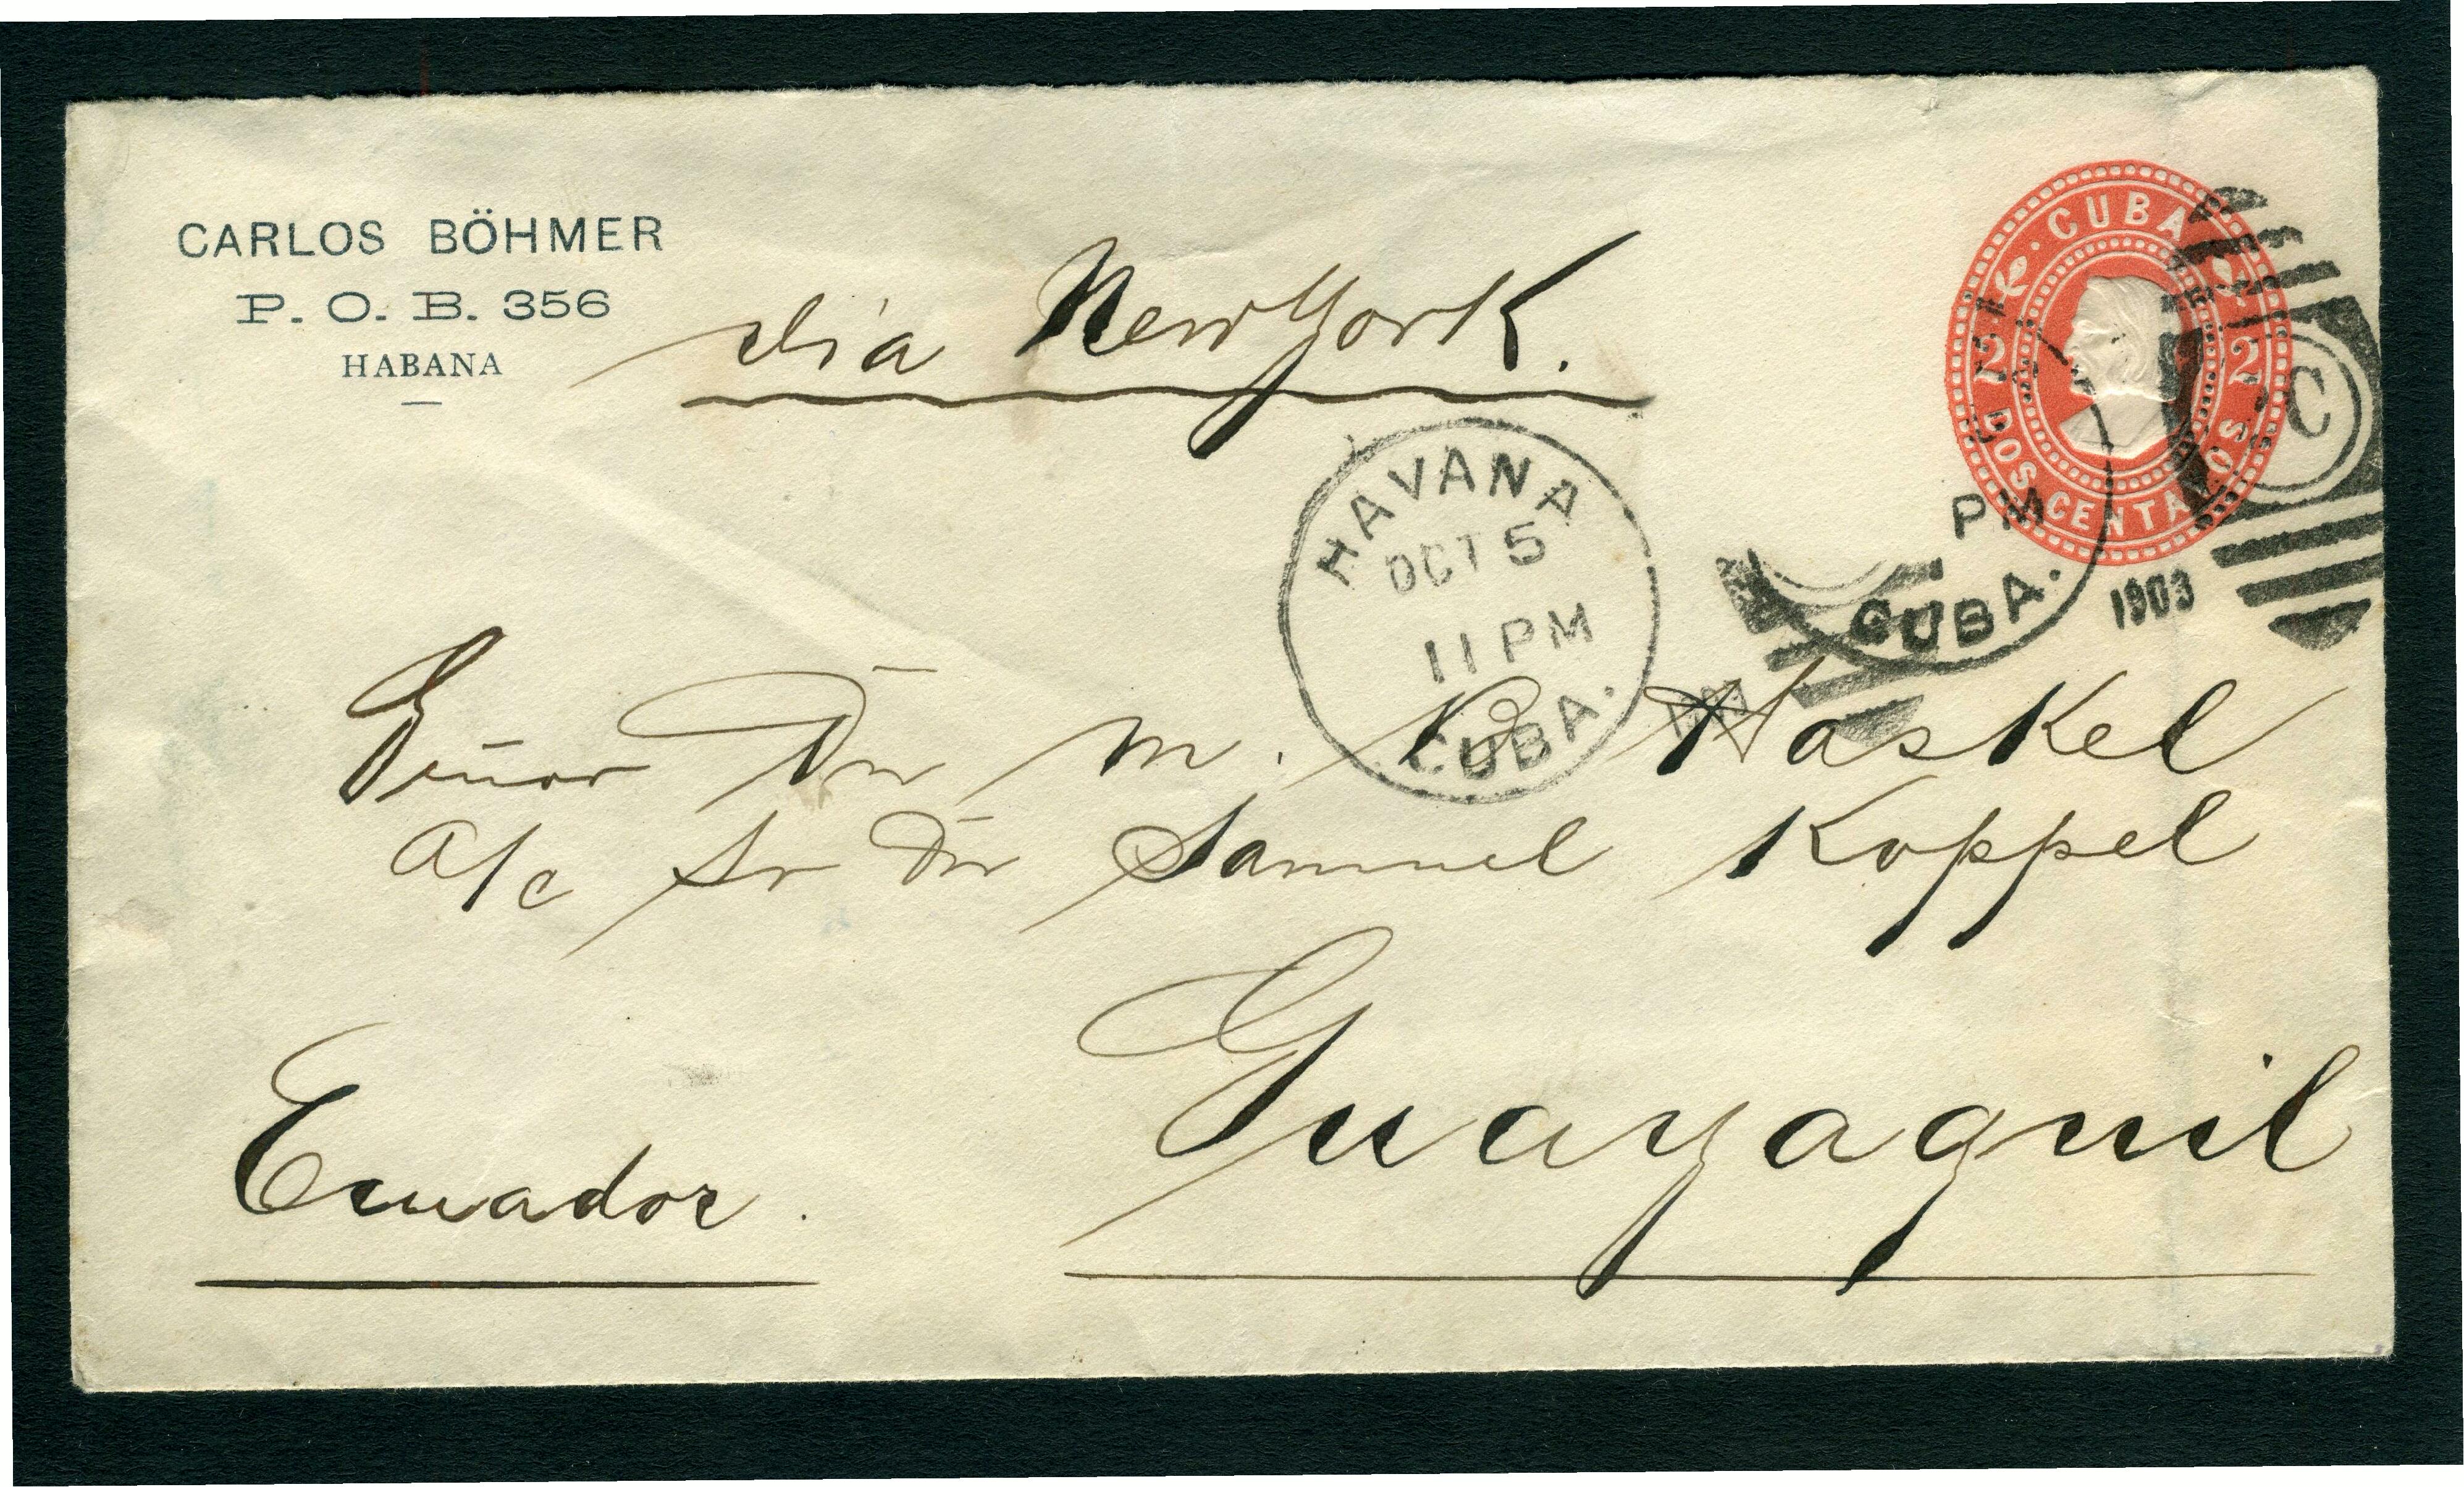 CARLOS BÖHMER
P. O. B. 356
HABANA
via New York.
CUBA
2 2
DOS CENTAVOS
C
HAVANA
OCT 5
11 PM
CUBA.
PM
CUBA.
1903
Señor Dn M. B. Haskel
a/c Sr Dn Samuel Koppel
Guayaquil
Ecuador.